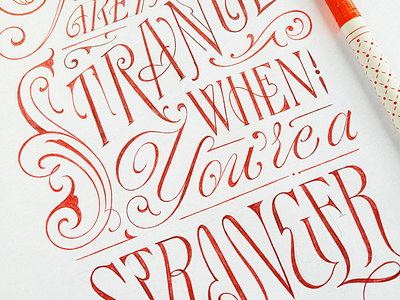 ARE
STRANGE
WHEN
You're a
STRANGER